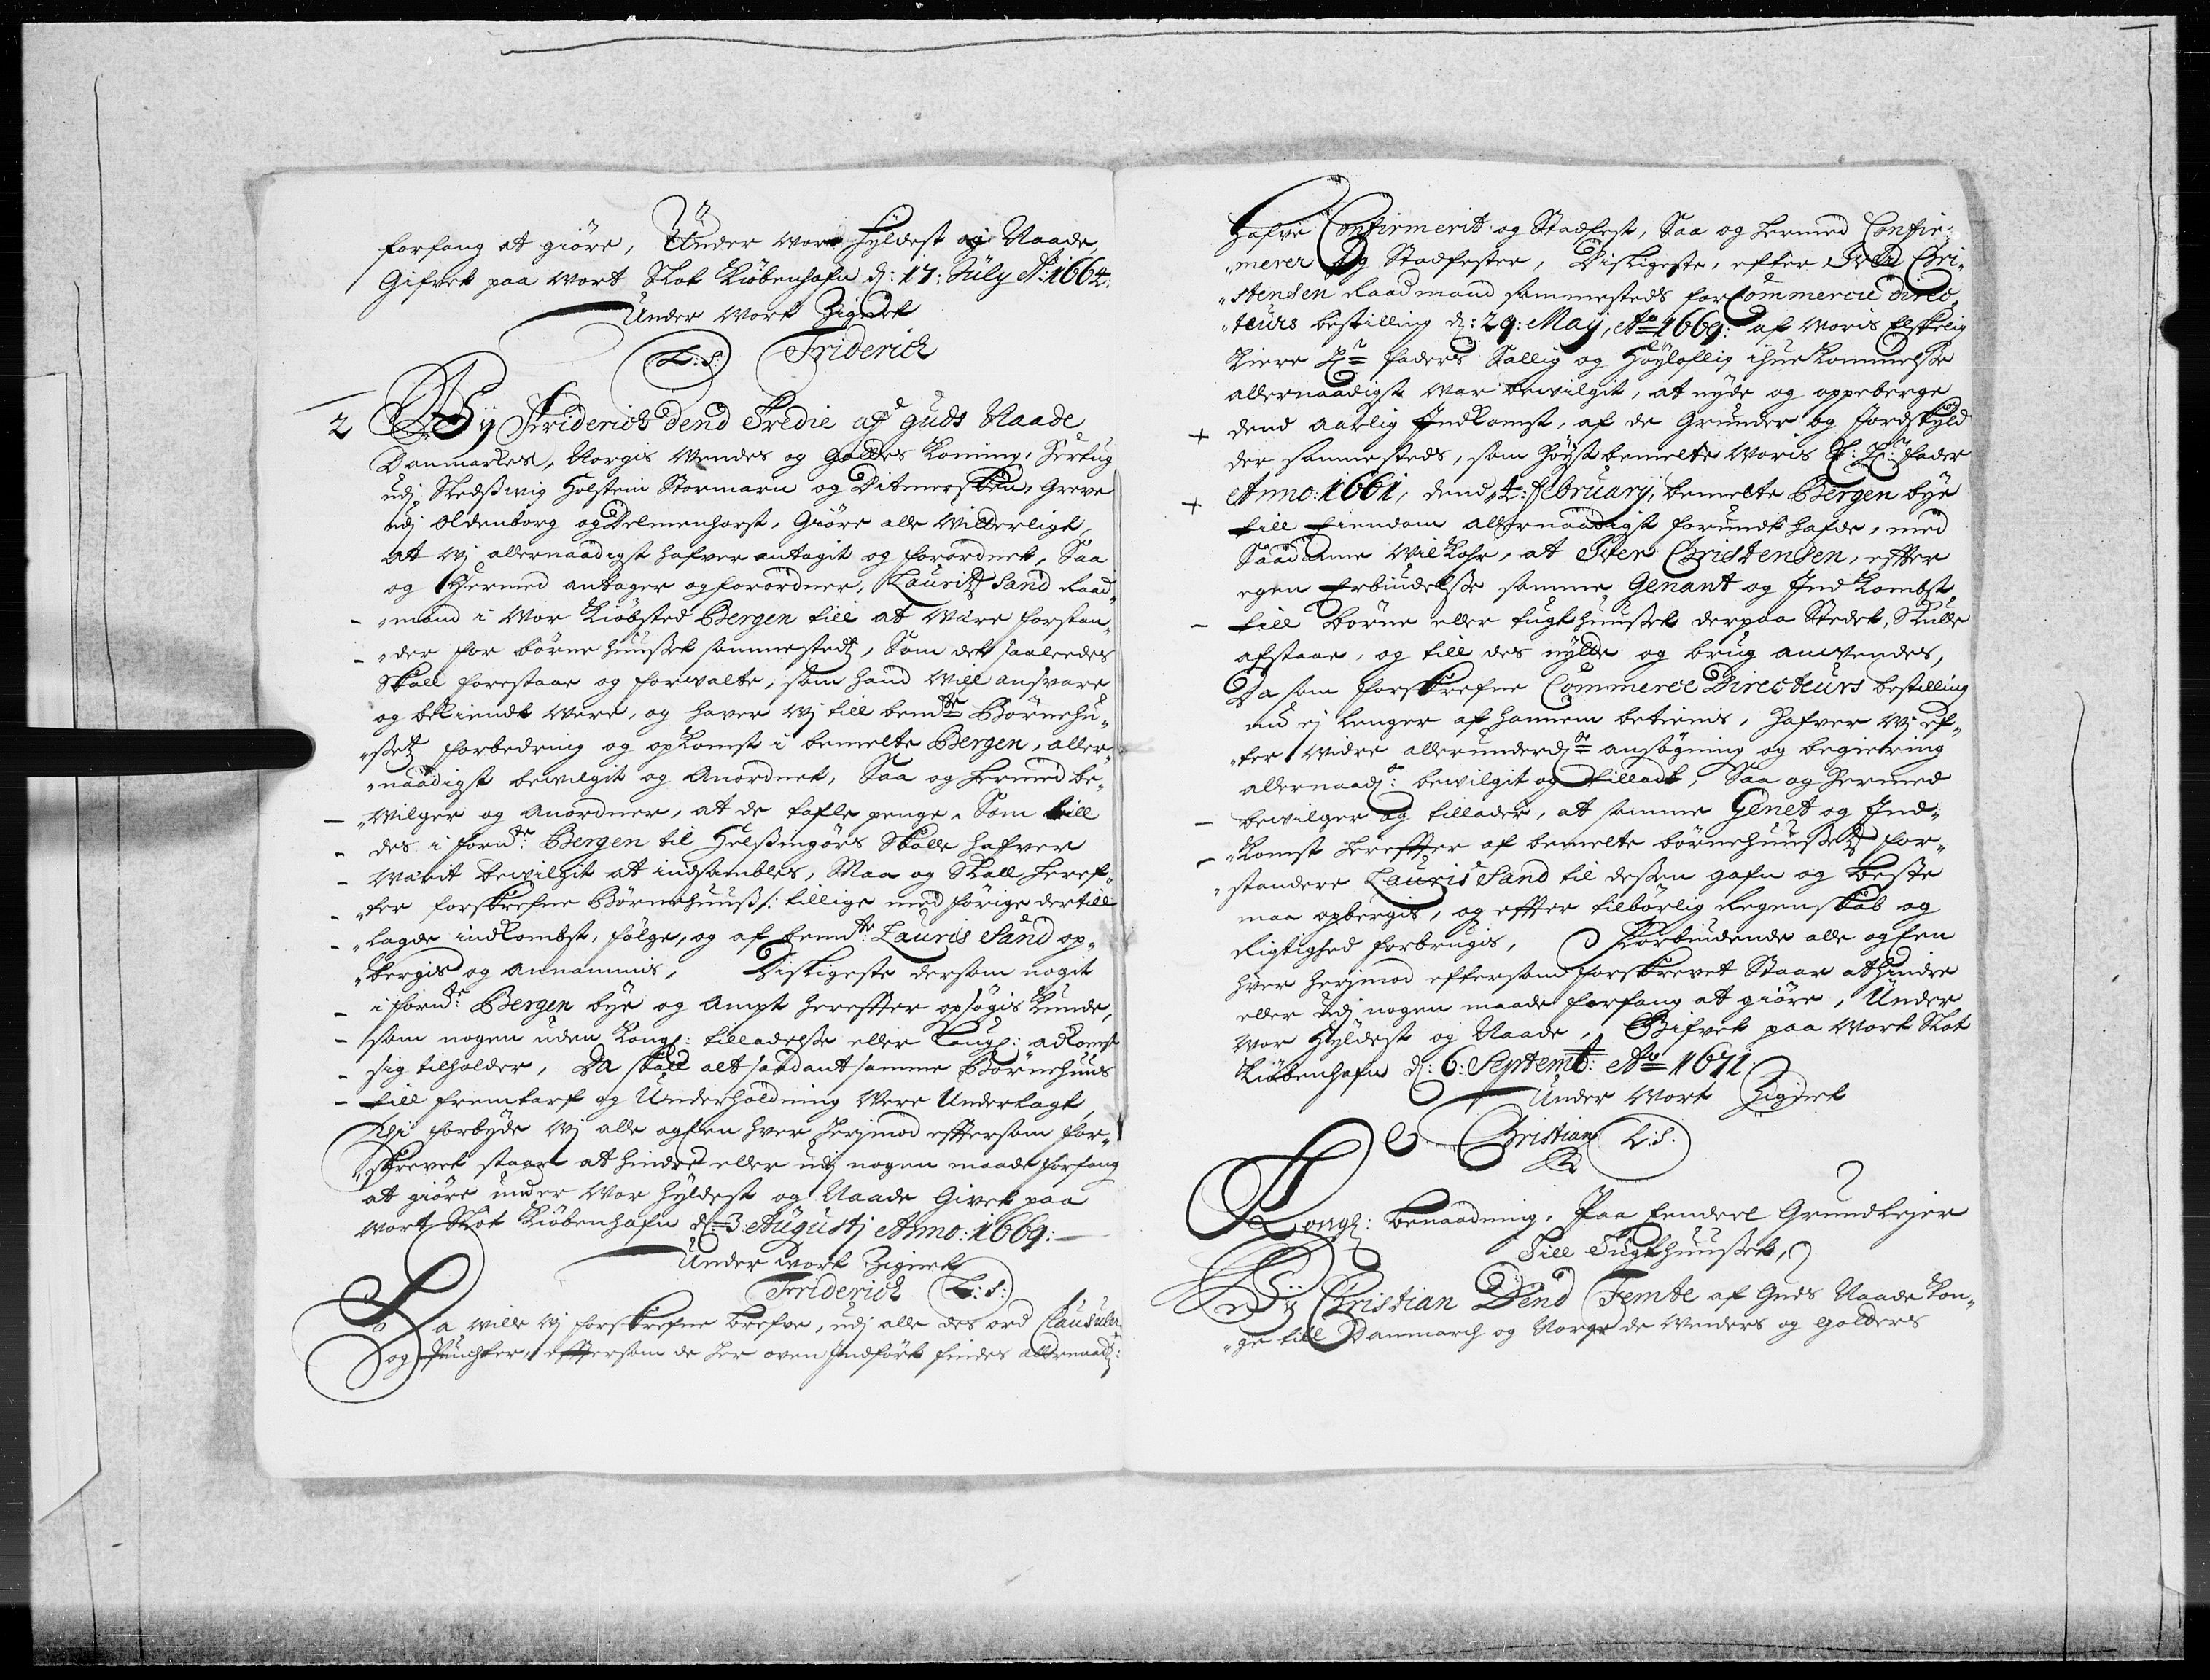 forfang at giöre, Under vor hyldest og Naade,
Gifvet paa vort Slot Kiöbenhafn d: 17: July A: 1664:
Under vort Zignet
L:S: Friderich
2 Wy Friderich dend Tredie af Guds Naade
Danmarkes, Norgis Vendes og Gottes Koning, Hertug
udj Sledsswig Holstein Stormarn og Ditmersken, Greve
udj Oldenborg og Delmenhorst, Giöre alle vitterligt,
at vj allernaadigst hafver antagit og forordnet, Saa
og Hermed antager og forordner, Lauritz Sand Raad„
„mand i vor Kiöbsted Bergen till at være forstan„
„der for börnehuusset sammestedtz, Som det saaleedes
skall forestaae og forvalte, som hand vill ansvare
og bekiendt være, og haver vj till bemte Börnehu„
„ssetz forbedring og opkomst i bemelte Bergen, aller„
„naadigst bevilgit og Anordnet, Saa og hermed be„
„vilger og anordner, at de tafle penge, Som till
des i fornde: Bergen til Helssingörs Skolle hafver
værit bevilgit at indsambles, Maa og Skall heref„
„ter forskrefne Börnehuuss /: tillige med forige dertill
„lagde indkombst, fölge, og af bemte: Lauris Sand op„
„bergis og annammis, Disligeste dersom nogit
i fornde: Bergen bye og Ampt hereffter opsögis kunde,
som nogen uden Kongl: tilladelsse eller Kongl: adkomst
sig tilholder, Da skall alt saadant samme Börnehuus
till fremtarf og Underholdning være Underlagt,
Thi forbyde vj alle og een hver herjmod effterssom for„
„skrevet staar at hindre eller udj nogen maade forfang
at giöre under vor hyldest og Naade Givet paa
vort Slot Kiöbenhafn d: 3 Augustj Anno: 1669:
Under vort Zignet
Friderich L:S:
Saa ville vj forskrefne brefve, udj alle des ord Clausuler
og Puncter, effterssom de her oven Indfört findes allernaadt:
Hafve Confirmerit og Stadfest, Saa og hermed Confir„
„merer og Stadfester, Disligeste, efter Iver Chri„
„stensen Raadmand sammesteds for Commercie direc„
„teurs bestilling d: 29: Maij, Ao 1669: af voris Elskelig
Kiere Hr faders Sallig og Höyloflig ihue kommelsse
allernaadigst var bevilgit, at nyde og oppeberge
+ dend aarlig Indkomst, af de Grunder og Jordskyld
der sammesteds, som höystbemelte voris K: Hr: fader
+ Anno: 1661, dend 4: february, bemelte Bergen bye
till Eiendom allernaadigst forundt hafde, med
Saadanne vilkohr, at Iver Christensen, effter
egen Erbiudelsse samme Genant og Indkombst
till börne eller tugthuusset derpaa Stedet, Skulle
afstaae, og till des nytte og brug anvendes,
Da som forskrefne Commerce Directeurs bestilling
nu ej lenger af hannem betienis, Hafver vj ef„
„ter videre allerunderdte ansögning og begiering
allernaadt: bevilgit og tilladt, Saa og hermed
bevilger og tillader, at samme Genet og Ind„
„komst hereffter af bemelte börnehuussetz for„
„standere Lauris Sand til dessen gafn og beste
maa opbergis, og effter tilbörlig Regenskab og
Rigtighed forbrugis, Forbiudende alle og een
hver herjmod effterssom forskrevet Staar at Hindre
eller udj nogen maade forfang at giöre, Under
vor hyldest og Naade, Gifvet paa vort Slot
Kiöbenhafn d: 6: Septemb: Ao 1671
Under vort Zignet
Christian L:S:
Kongl: benaadning, Paa Grundlejer
Till Tugthuusset,
Wy Christian Dend Femte af Guds Naade Kon„
„ge till Danmarch og Norge de Venders og Gotters